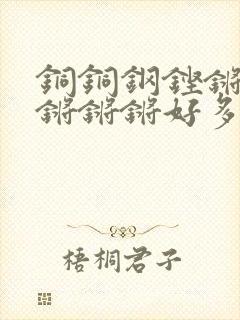 銅銅鋼鏗鏘
鏘鏘鏘好多
梧桐君子